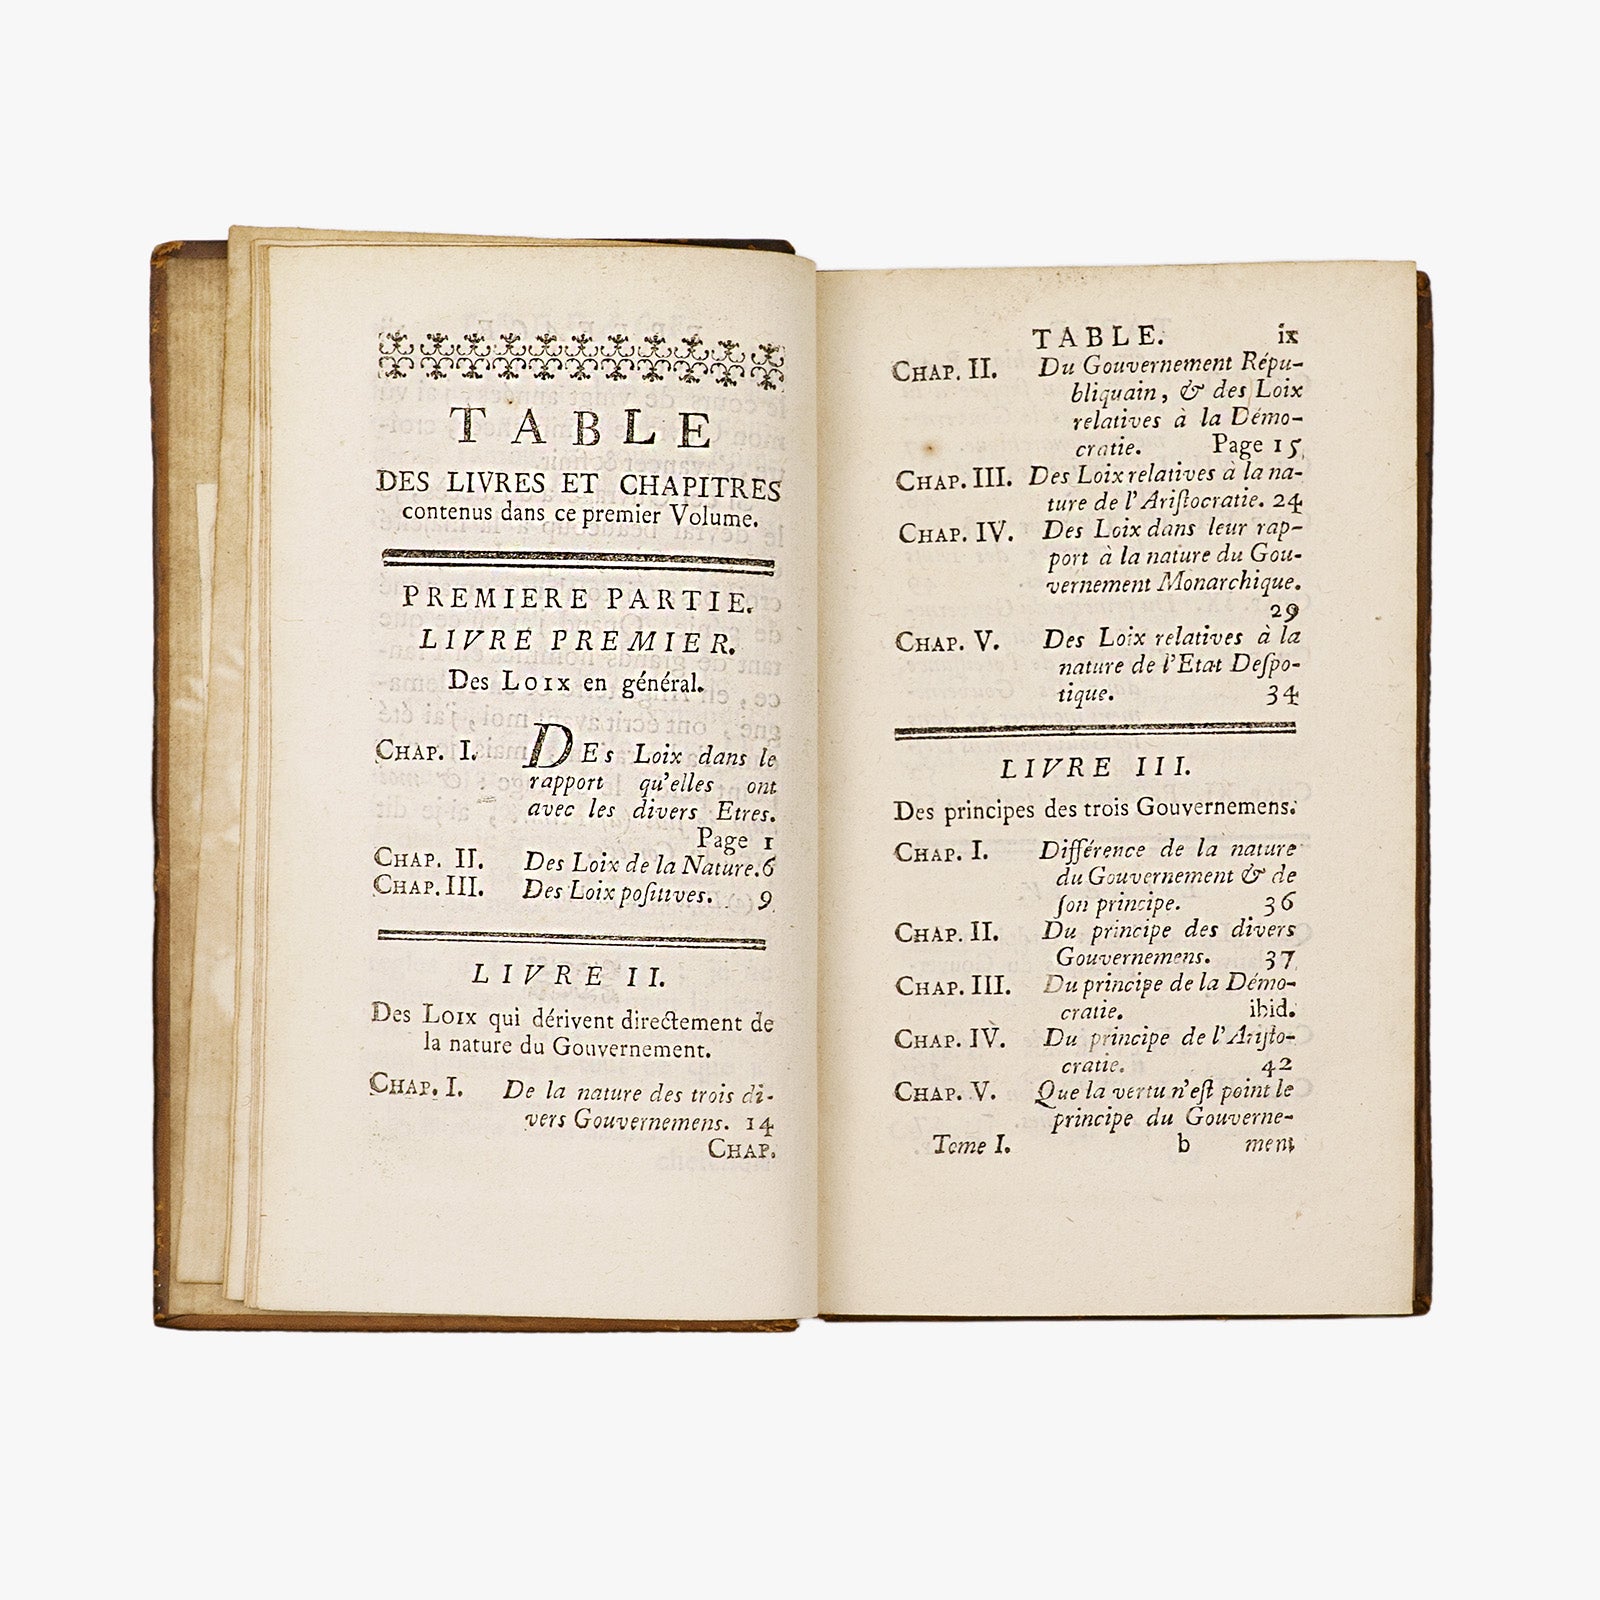 TABLE
DES LIVRES ET CHAPITRES
contenus dans ce premier Volume.
PREMIERE PARTIE.
LIVRE PREMIER.
Des Loix en général.
Chap. I. DEs Loix dans le
rapport qu'elles ont
avec les divers Etres.
Page 1
Chap. II. Des Loix de la Nature. 6
Chap. III. Des Loix poſitives. 9
LIVRE II.
Des Loix qui dérivent directement de
la nature du Gouvernement.
Chap. I. De la nature des trois di-
vers Gouvernemens. 14
Chap.
TABLE. ix
Chap. II. Du Gouvernement Répu-
bliquain, & des Loix
relatives à la Démo-
cratie. Page 15
Chap. III. Des Loix relatives à la na-
ture de l'Ariſtocratie. 24
Chap. IV. Des Loix dans leur rap-
port à la nature du Gou-
vernement Monarchique.
29
Chap. V. Des Loix relatives à la
nature de l'Etat Deſpo-
tique. 34
LIVRE III.
Des principes des trois Gouvernemens.
Chap. I. Différence de la nature
du Gouvernement & de
ſon principe. 36
Chap. II. Du principe des divers
Gouvernemens. 37
Chap. III. Du principe de la Démo-
cratie. ibid.
Chap. IV. Du principe de l'Ariſto-
cratie. 42
Chap. V. Que la vertu n'eſt point le
principe du Gouverne-
Tome I. b ment